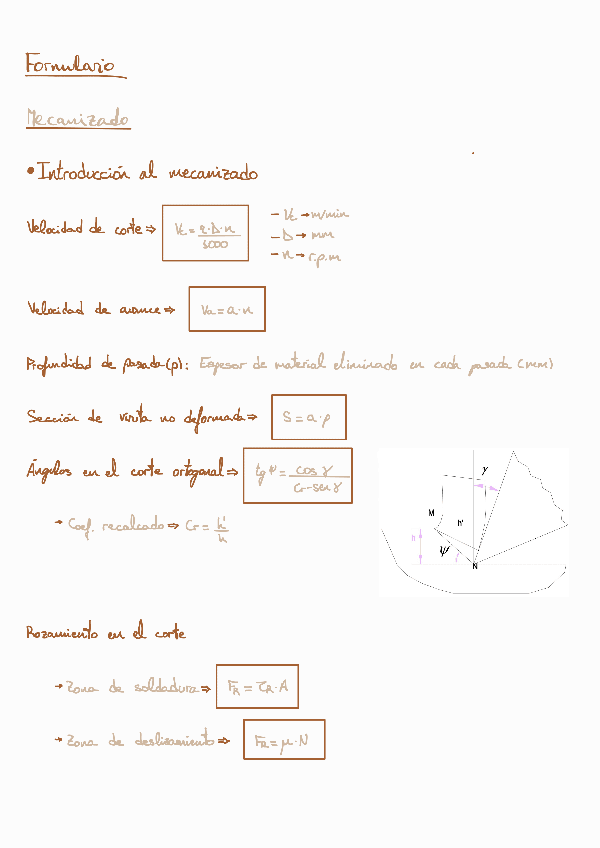 Formulario
Mecanizado
• Introducción al mecanizado
Velocidad de corte ⇒ Vc = π·D·n / 1000
– Vc → m/min
– D → mm
– n → r.p.m
Velocidad de avance ⇒ Va = a·n
Profundidad de pasada (p): Espesor de material eliminado en cada pasada (mm)
Sección de viruta no deformada ⇒ S = a·p
Ángulos en el corte ortogonal ⇒ tg ψ = cos γ / Cr - sen γ
→ Coef. recalcado ⇒ Cr = h' / h
γ
M
h'
h
ψ
N
Rozamiento en el corte
→ Zona de soldadura ⇒ FR = τR·A
→ Zona de deslizamiento ⇒ FR = μ·N